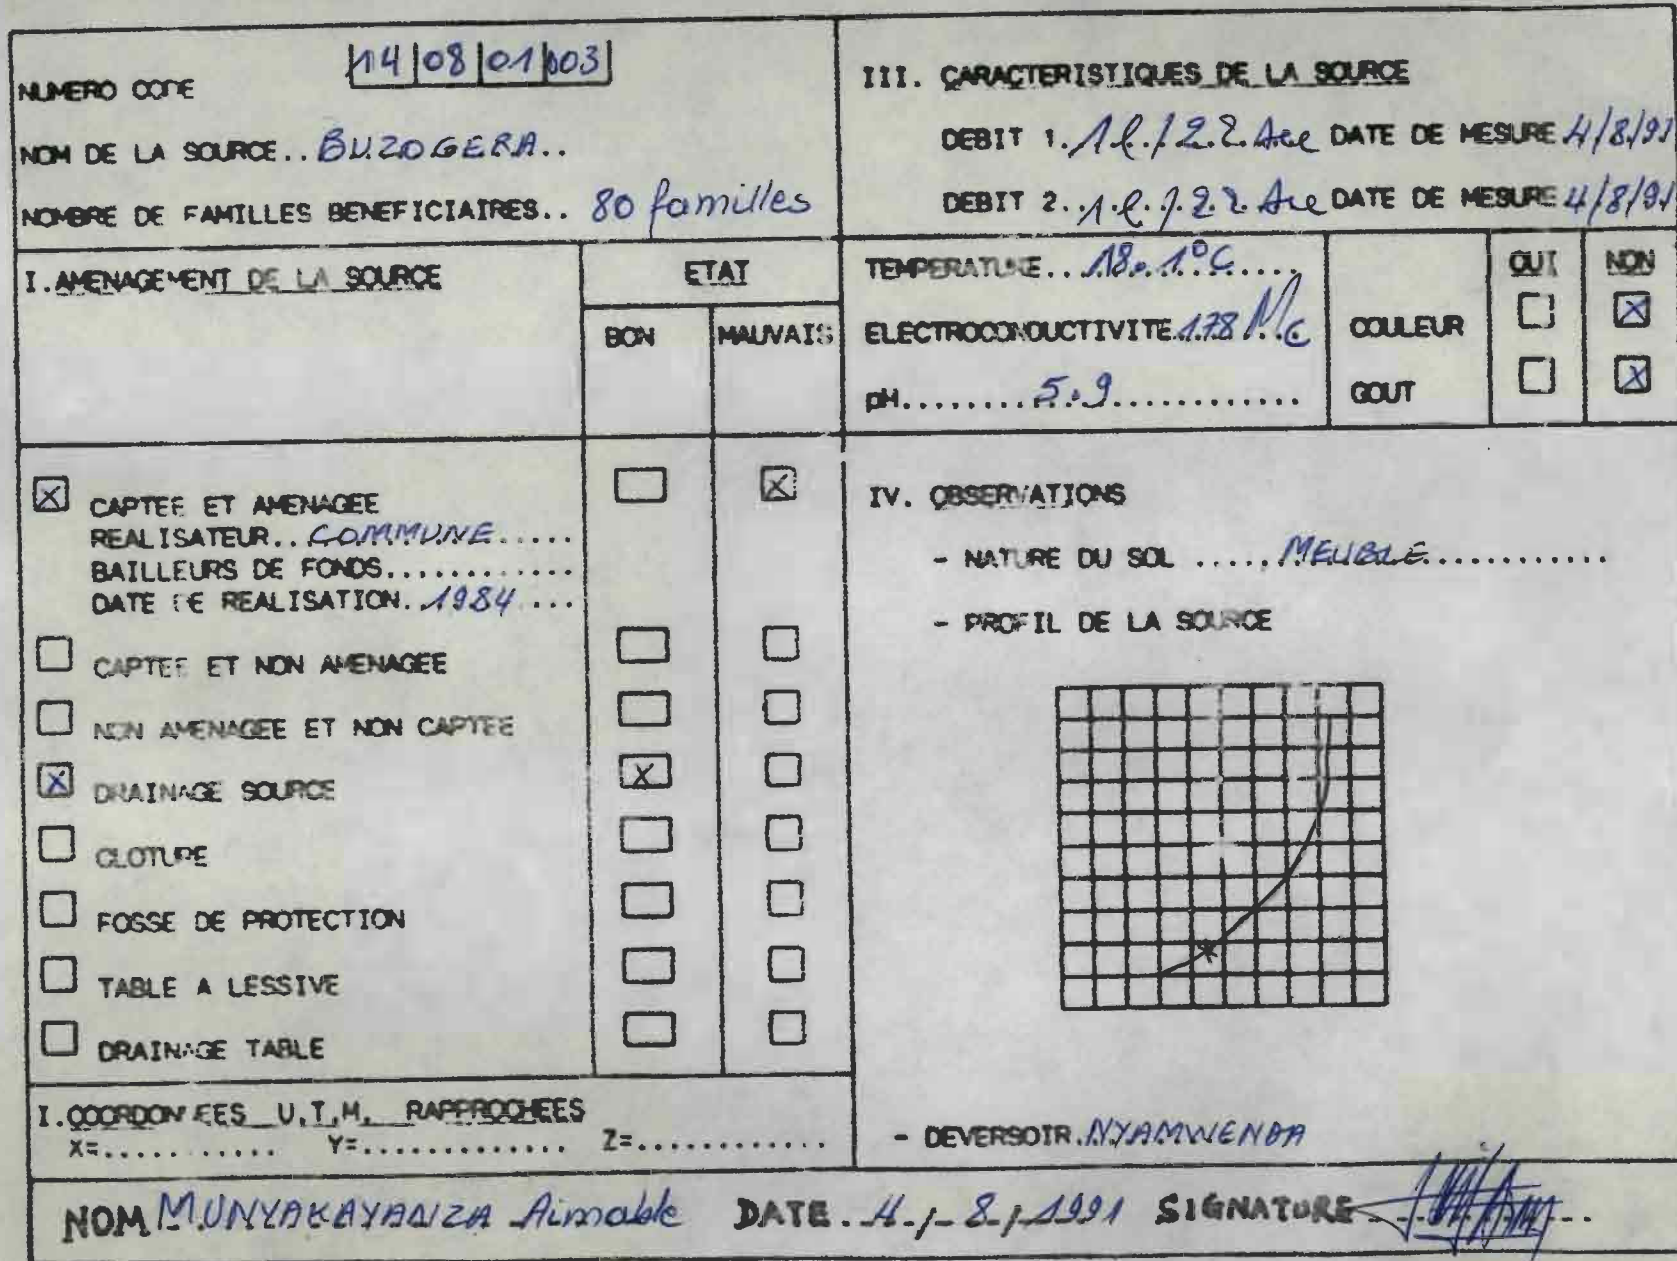 NUMERO CODE 14|08|01|003
NOM DE LA SOURCE..BUZOGERA..
NOMBRE DE FAMILLES BENEFICIAIRES.. 80 familles
I.AMENAGEMENT DE LA SOURCE
ETAT
BON MAUVAIS
X CAPTEE ET AMENAGEE X
REALISATEUR..COMMUNE.....
BAILLEURS DE FONDS............
DATE DE REALISATION..1984...
CAPTEE ET NON AMENAGEE
NON AMENAGEE ET NON CAPTEE
X DRAINAGE SOURCE X
CLOTURE
FOSSE DE PROTECTION
TABLE A LESSIVE
DRAINAGE TABLE
I.COORDONNEES U.T.M. RAPPROCHEES
X=........... Y=............. Z=.............
III. CARACTERISTIQUES DE LA SOURCE
DEBIT 1. 1l./2.2. DATE DE MESURE 4/8/91
DEBIT 2. 1.l./.2.2. DATE DE MESURE 4/8/91
TEMPERATURE...18.1°C.....
ELECTROCONDUCTIVITE.178
pH........5.9............
OUI NON
COULEUR X
GOUT X
IV. OBSERVATIONS
- NATURE DU SOL .....MEUBLE............
- PROFIL DE LA SOURCE
- DEVERSOIR.NYAMWENDA
NOM MUNYAKAYANZA Aimable DATE. 4-/-8-/1991 SIGNATURE